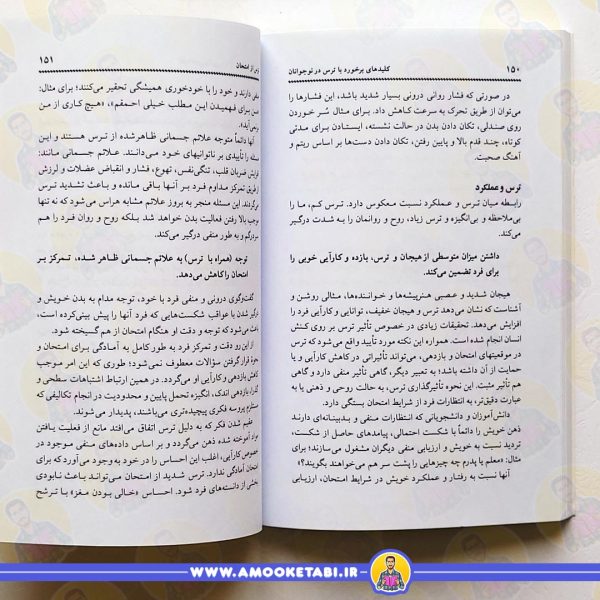 ۱۵۰
کلیدهای برخورد با ترس در نوجوانان
در صورتی که فشار روانی درونی بسیار شدید باشد، این فشارها را
می‌توان از طریق تحرک به سرعت کاهش داد. برای مثال سُر خوردن
روی صندلی، تکان دادن بدن در حالت نشسته، ایستادن برای مدتی
کوتاه، چند قدم بالا و پایین رفتن، تکان دادن دست‌ها بر اساس ریتم و
آهنگ صحبت.
ترس و عملکرد
رابطه میان ترس و عملکرد نسبت معکوس دارد. ترس کم، ما را
بی‌ملاحظه و بی‌انگیزه و ترس زیاد، روح و روانمان را به شدت درگیر
می‌کند.
داشتن میزان متوسطی از هیجان و ترس، بازده و کارآیی خوبی را
برای فرد تضمین می‌کند.
هیجان شدید و عصبی هنرپیشه‌ها و خواننده‌ها، مثالی روشن و
آشناست که نشان می‌دهد ترس و هیجان خفیف، توانایی و کارآیی فرد را
افزایش می‌دهد. تحقیقات زیادی در خصوص تأثیر ترس بر روی کنش
انسان انجام شده است. همواره این نکته مورد تأیید واقع می‌شود که ترس
در موقعیتهای امتحان و بازدهی، می‌تواند تأثیراتی در کاهش کارآیی و یا
حمایت از آن داشته باشد؛ به تعبیر دیگر، گاهی تأثیر منفی دارد و گاهی
هم تأثیر مثبت. این نحوه تأثیرگذاری ترس، به حالت روحی و ذهنی یا به
عبارت دقیق‌تر، به انتظارات فرد از شرایط امتحان بستگی دارد.
دانش‌آموزان و دانشجویانی که انتظارات منفی و بدبینانه‌ای دارند
ذهن خویش را دائماً با شکست احتمالی، پیامدهای حاصل از شکست،
تردید نسبت به خویش و ارزیابی منفی دیگران مشغول می‌سازند؛ برای
مثال: «معلم یا پدرم چه چیزهایی را پشت سر هم می‌خواهند بگویند؟»
آنها نسبت به رفتار و عملکرد خویش در شرایط امتحان، ارزیابی
ترس از امتحان
۱۵۱
منفی دارند و خود را با خودخوری همیشگی تحقیر می‌کنند؛ برای مثال:
«من برای فهمیدن این مطلب خیلی احمقم»، «هیچ کاری از من
برنمی‌آید».
آنها دائماً متوجه علائم جسمانی ظاهر شده از ترس هستند و این
مسئله را تأییدی بر ناتوانیهای خود می‌دانند. علائم جسمانی مانند:
افزایش ضربان قلب، تنگی‌نفس، تهوع، فشار و انقباض عضلات و لرزش
از طریق تمرکز مداوم فرد بر آنها باقی مانده و باعث تشدید ترس
می‌گردد. این مسئله منجر به بروز علائم مشابه هراس می‌شود که نه تنها
موجب بالا رفتن فعالیت بدن خواهد شد بلکه روح و روان فرد را هم
سردرگم و به طور منفی درگیر می‌کند.
توجه (همراه با ترس) به علائم جسمانی ظاهر شده، تمرکز بر
امتحان را کاهش می‌دهد.
گفت‌وگوی درونی و منفی فرد با خود، توجه مدام به بدن خویش و
درگیر شدن با عواقب شکست‌هایی که فرد آنها را پیش بینی کرده است،
باعث می‌شود که توجه و دقت او هنگام امتحان از هم گسیخته شود.
از این رو دقت و تمرکز فرد به طور کامل به آمادگی برای امتحان و
نحوهٔ قرار گرفتن سؤالات معطوف نمی‌شود؛ طوری که این امر موجب
کاهش بازدهی و کارآیی او می‌گردد. در همین ارتباط اشتباهات سطحی و
گذرا، بازدهی اندک، انگیزه تحمل پایین و محدودیت در انجام تکالیفی که
مستلزم پروسه فکری پیچیده‌تری می‌باشند، پدیدار می‌شوند.
عقیم شدن فکر به دلیل ترس اتفاق می‌افتد مانع از فعلیت یافتن
مواد آموخته شده ذهن می‌گردد و بر اساس داده‌های منفی موجود در
خصوص کارآیی، اغلب این احساس را در خود به‌وجود می‌آورد که برای
امتحان آمادگی ندارد. ترس شدید از امتحان می‌تواند باعث نابودی
بخشی از دانسته‌های فرد شود. احساس «خالی بودن مغز» با ترشح
WWW.AMOOKETABI.IR